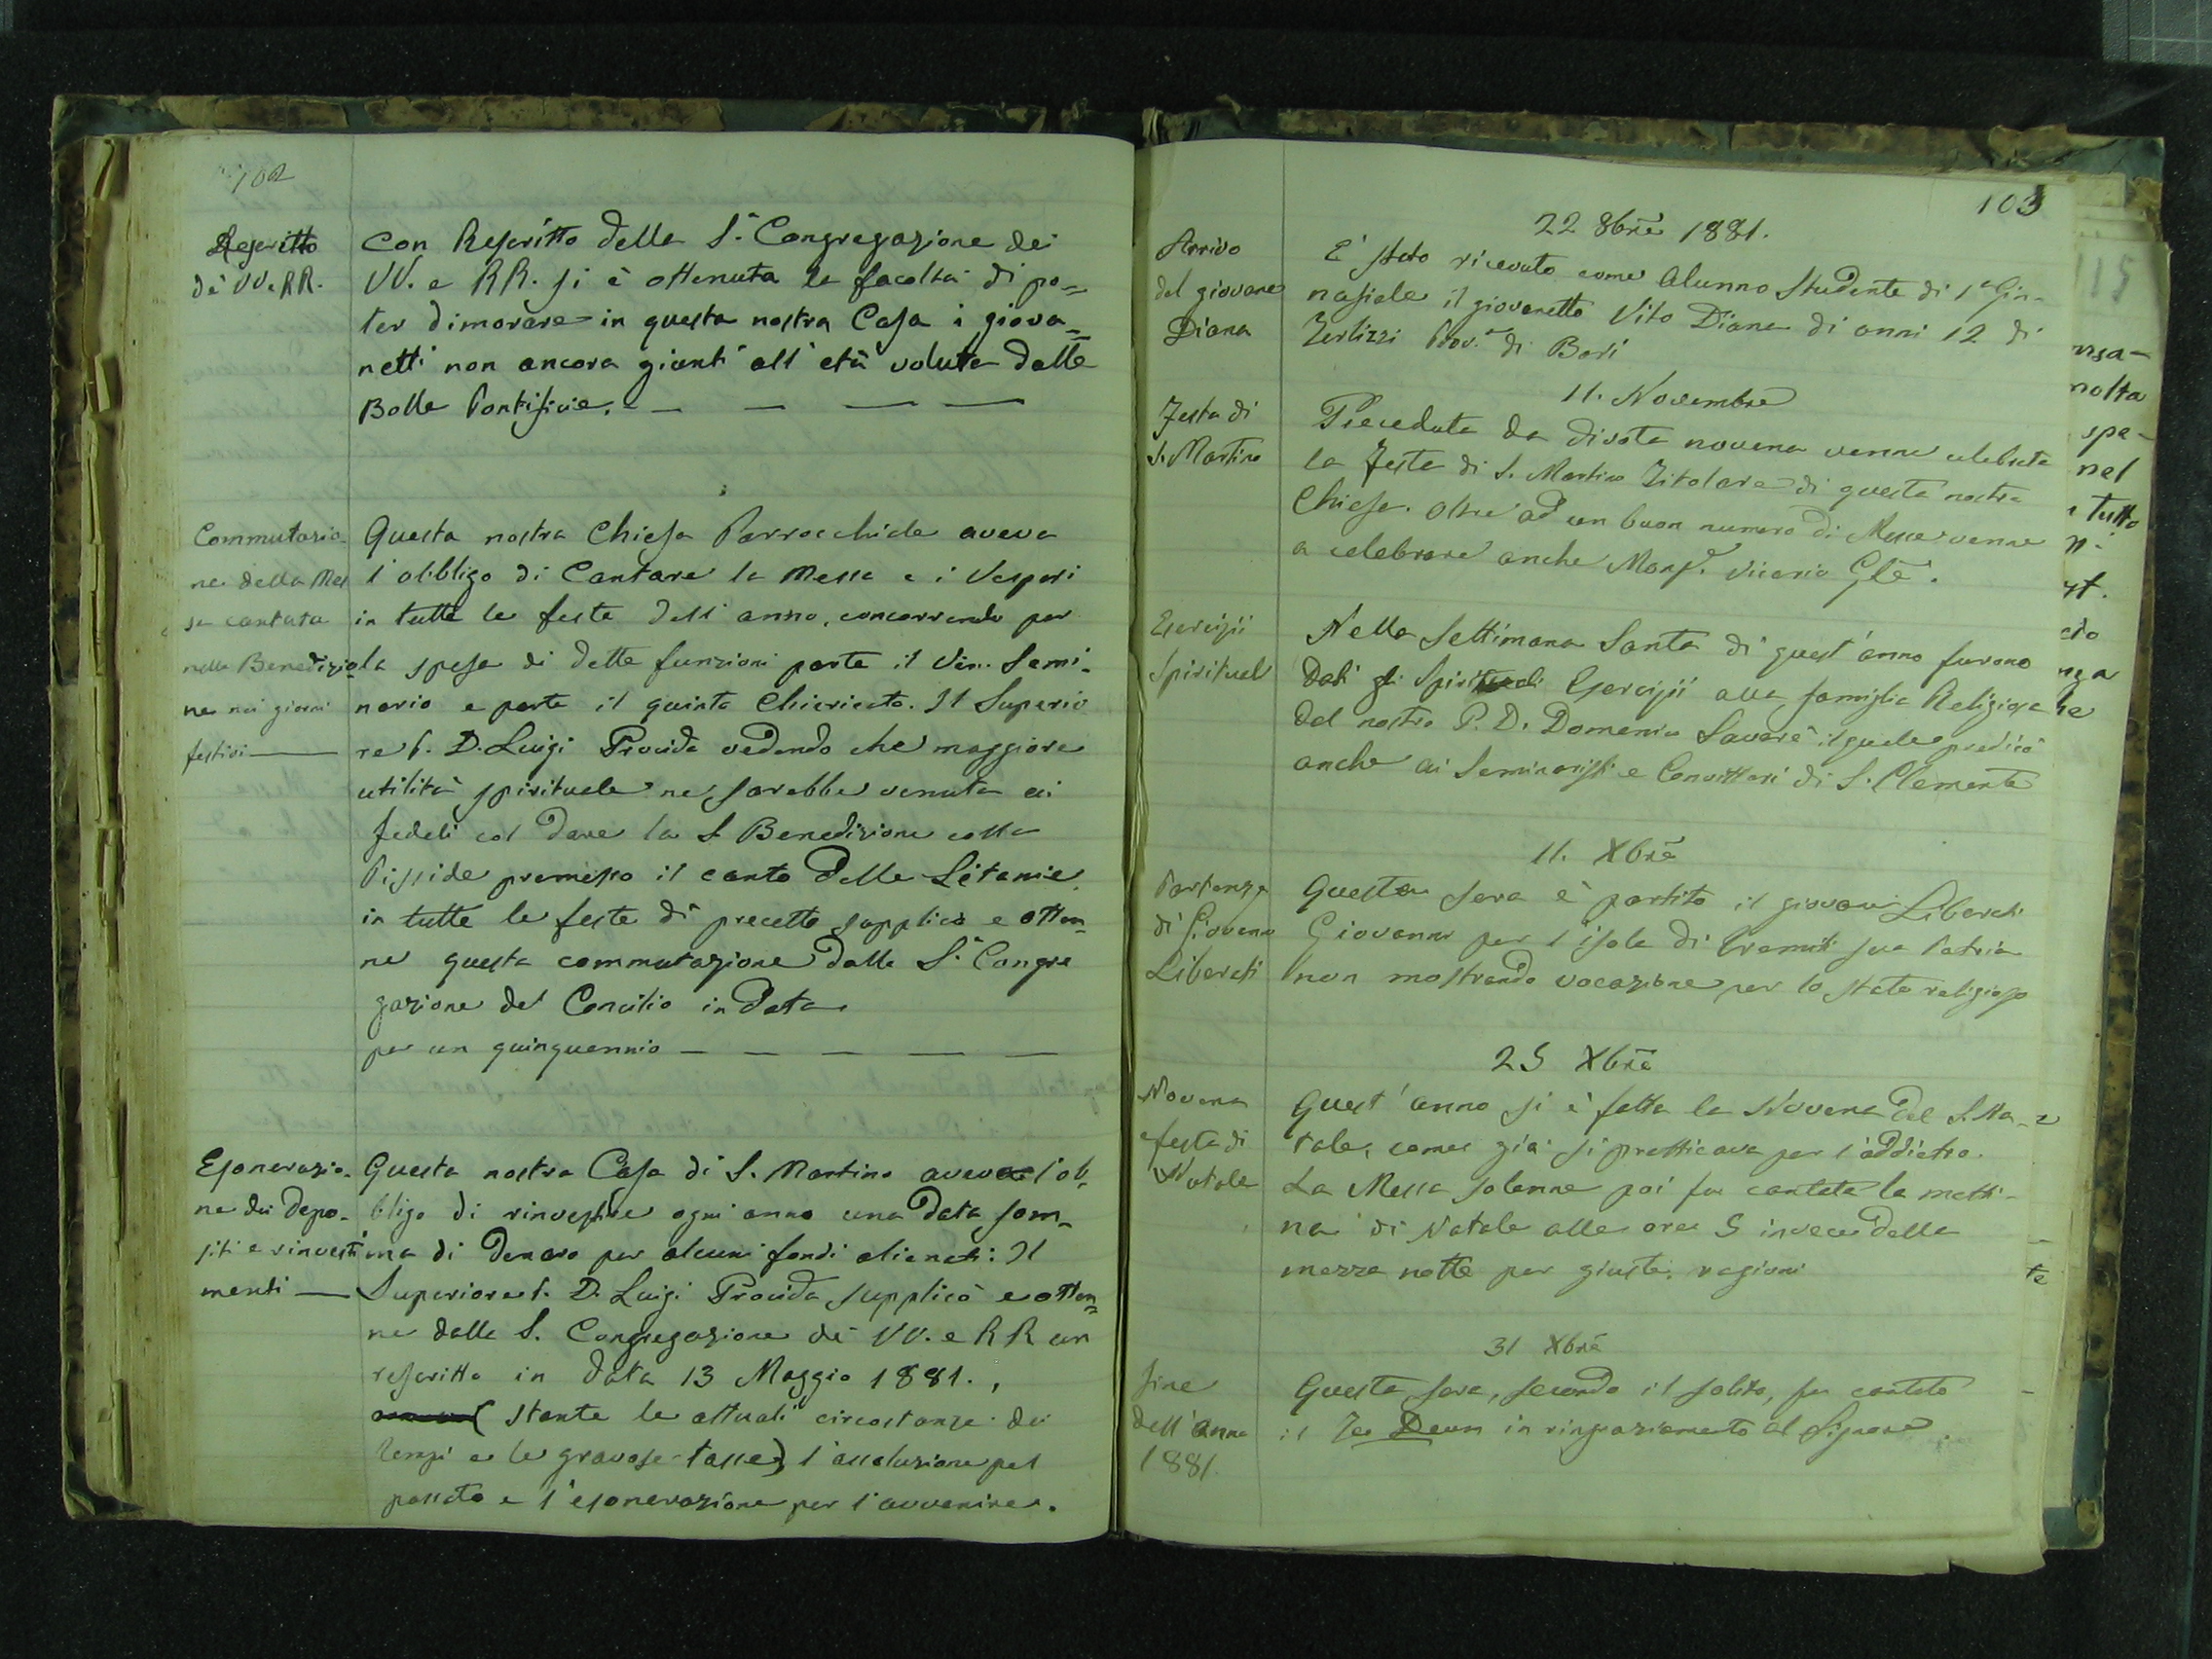 102
Rescritto
de' VV. e RR.
Con Rescritto della S. Congregazione dei
VV. e RR. si è ottenuta la facoltà di po=
ter dimorare in questa nostra Casa i giova=
netti non ancora giunti all'età voluta dalle
Bolle Pontificie. — — — —
Commutazio-
ne della Mes
sa cantata
nella Benedizio=
ne nei giorni
festivi —
Questa nostra Chiesa Parrocchiale aveva
l'obbligo di Cantare la Messa e i Vesperi
in tutte le feste dell'anno, concorrendo per
la spesa di dette funzioni parte il Ven. Semi-
nario e parte il quinto Chiericato. Il Superio
re P. D. Luigi Procida vedendo che maggiore
utilità spirituale ne sarebbe venuta ai
fedeli col dare la S. Benedizione colla
Pisside premesso il canto delle Litanie
in tutte le feste di precetto supplicò e otten=
ne questa commutazione dalla S. Congre
gazione del Concilio in Data
per un quinquennio — — — — —
Esonerazio-
ne dei Depo-
siti e rinvesti
menti —
Questa nostra Casa di S. Martino aveva l'ob=
bligo di rinvestire ogni anno una data som=
ma di Denaro per alcuni fondi alienati: Il
Superiore P. D. Luigi Procida supplicò e otten=
ne dalla S. Congregazione de' VV. e RR un
rescritto in data 13 Maggio 1881. ,
( stante le attuali circostanze dei
tempi e le gravose tasse) l'assoluzione pel
passato e l'esonerazione per l'avvenire.
103
22 8bre 1881.
Arrivo
del giovane
Diana
E' stato ricevuto come Alunno Studente di 1a Gin-
nasiale il giovanetto Vito Diana di anni 12 di
Terlizzi Prov. di Bari
11. Novembre
Festa di
S. Martino
Preceduta da divota novena venne celebrata
la Festa di S. Martino Titolare di questa nostra
Chiesa. Oltre ad un buon numero di Messe venne
a celebrare anche Mons. Vicario Gle.
Esercizii
Spirituali
Nella Settimana Santa di quest'anno furono
Dati gli Spirituali Esercizii alla famiglia Religiosa
dal nostro P. D. Domenico Savarè il quale predicò
anche ai Seminaristi e Convittori di S. Clemente
11. Xbre
Partenza
di Giovanni
Liberati
Questa sera è partito il giovane Liberati
Giovanni per l'isola di Tremiti sua Patria
non mostrando vocazione per lo stato religioso
25 Xbre
Novena
e festa di
Natale
Quest'anno si è fatta la Novena del S. Na-
tale, come già si pratticava per l'addietro.
La Messa solenne poi fu cantata la matti-
na di Natale alle ore 5 invece della
mezza notte per giuste ragioni
31 Xbre
fine
dell'anno
1881.
Questa sera, secondo il solito, fu cantato
il Te Deum in ringraziamento al Signore.
115
molta
spe-
nel
tutto
te